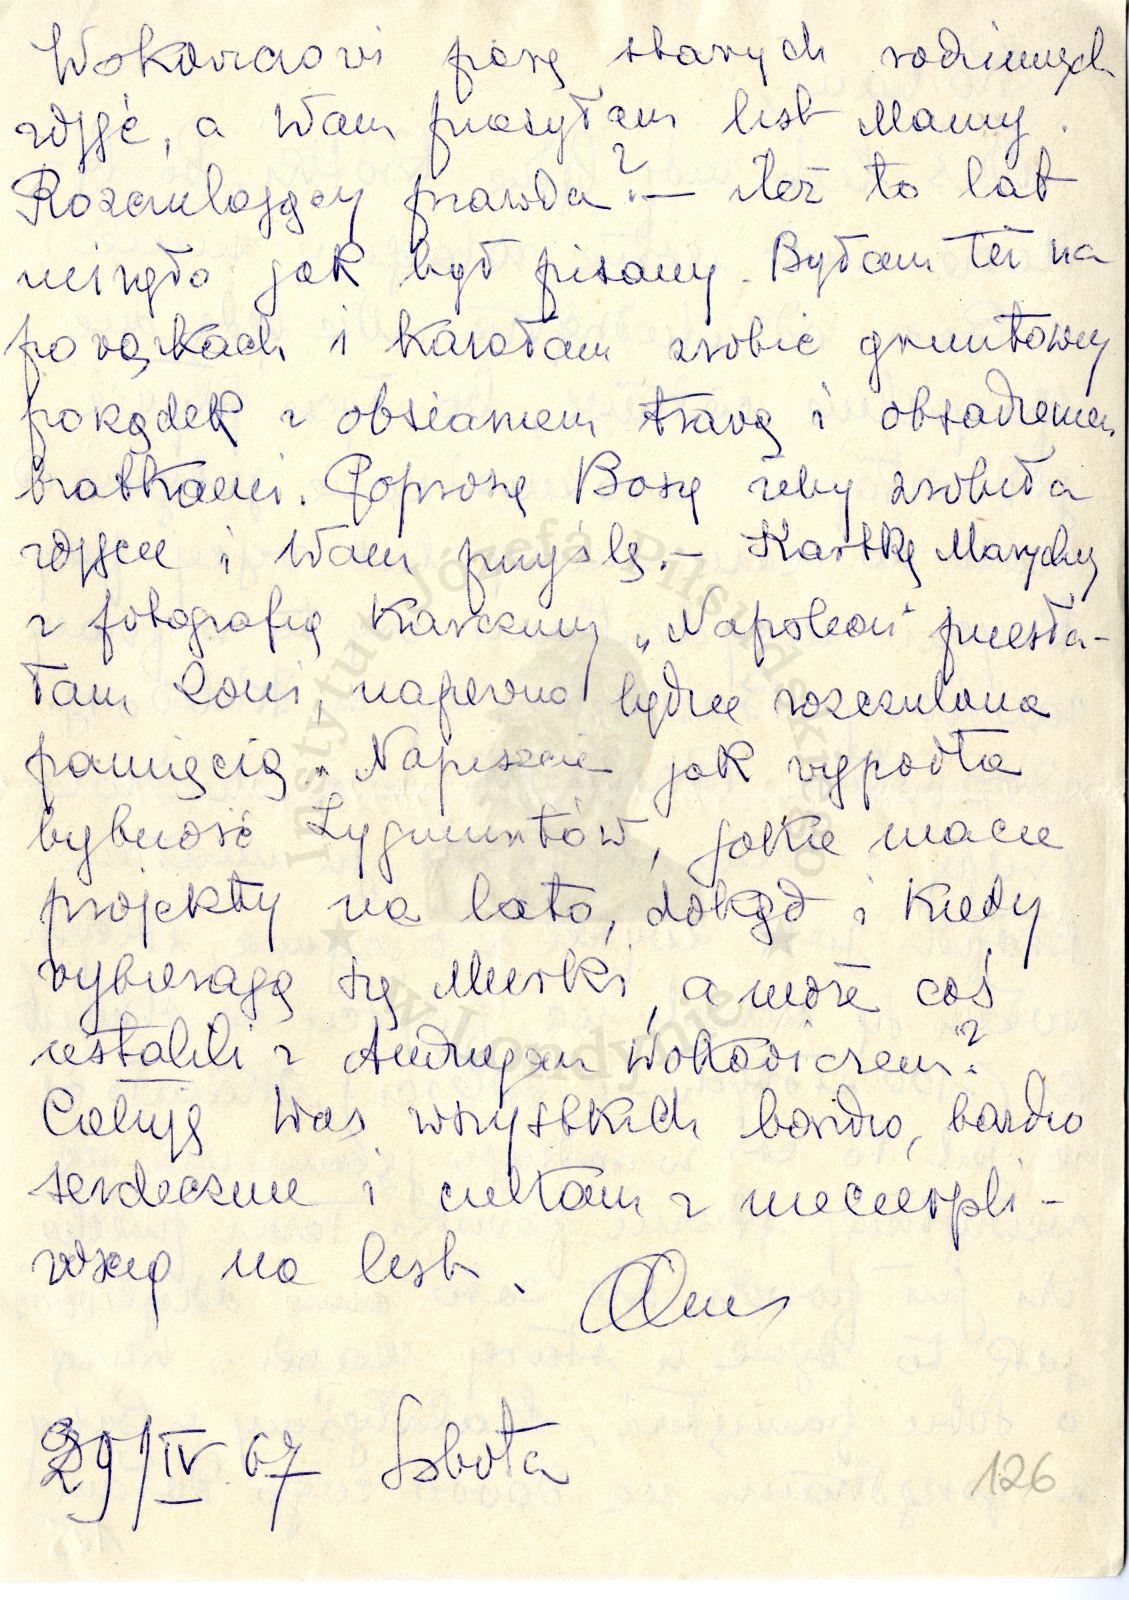 parę starych rodzinnych
zdjęć, a Wam przesyłam list Mamy.
Rozczulający prawda? — ileż to lat
minęło jak był pisany. Byłam też na
Powązkach i kazałam zrobić gruntowny
porządek z obsianiem trawą i obsadzeniem
bratkami. Poproszę Basię żeby zrobiła
zdjęcie i Wam przyślę. — Kartkę Marychny
z fotografią Karczmy „Napoleon" przesła-
łam Loni, napewno będzie rozczulona
pamięcią. Napiszcie jak wypadła
bytność Zygmuntów, jakie macie
projekty na lato, dokąd i kiedy
wybierają się Mirki, a może coś
ustalili z Andrzejem Wokowiczem?
Całuję Was wszystkich bardzo, bardzo
serdecznie i czekam z niecierpli-
wością na list.
29/IV. 67 Sobota
126
Instytut Józefa Piłsudskiego
w Londynie